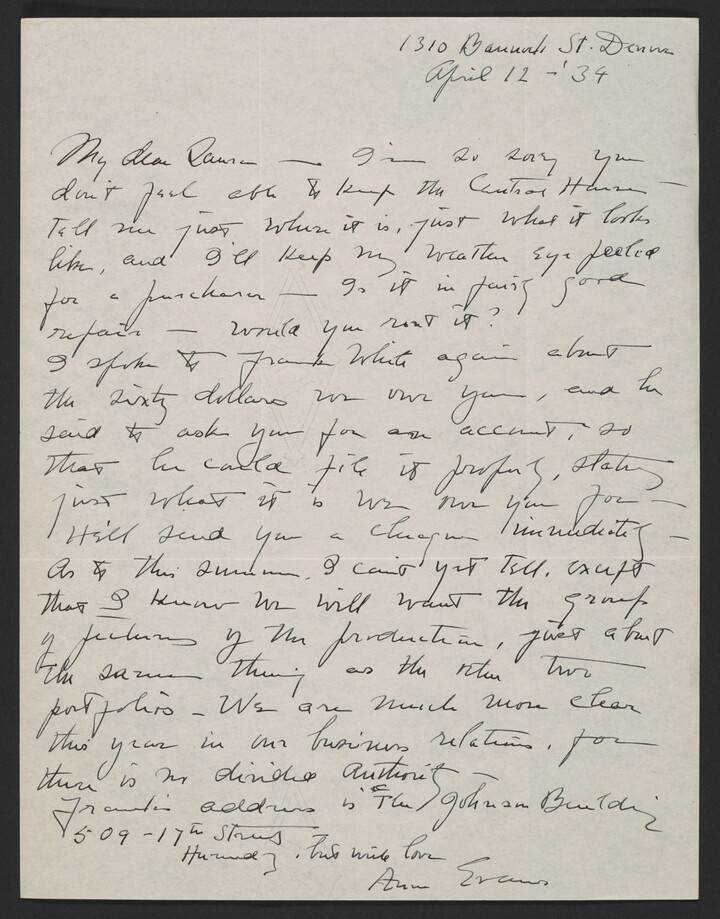 1310 Bannock St. Denver
April 12 - '34
My dear Laura — I'm so sorry you
don't feel able to keep the Central House —
Tell me just where it is, just what it looks
like, and I'll keep my weather eye peeled
for a purchaser — Is it in fairly good
repair — would you rent it?
I spoke to Frank White again about
the sixty dollars we owe you, and he
said to ask you for an account, so
that he could file it properly, stating
just what it is we owe you for —
He'll send you a cheque immediately —
As to this summer, I can't yet tell, except
that I know we will want the group
of pictures of the production, just about
the same thing as the other two
portfolios - We are much more clear
this year in our business relations, for
there is no divided authority
Frank's address is "The Johnson Building
509 - 17th Street -
Hurriedly, but with love
Anne Evans